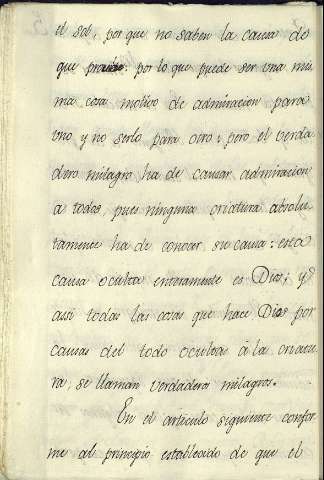 el sol, porque no saben la causa de
que : por lo que puede ser una mis
ma cosa motivo de admiracion para
uno y no serlo para otro: pero el verda
dero milagro ha de causar admiracion
a todos, pues ninguna criatura absolu
tamente ha de conocer su causa: esta
causa oculta enteramente es Dios; y
assi todas las cosas que hace Dios por
causas del todo ocultas á la criatu
ra, se llaman verdaderos milagros.
En el articulo siguiente confor
me al principio establecido de que el